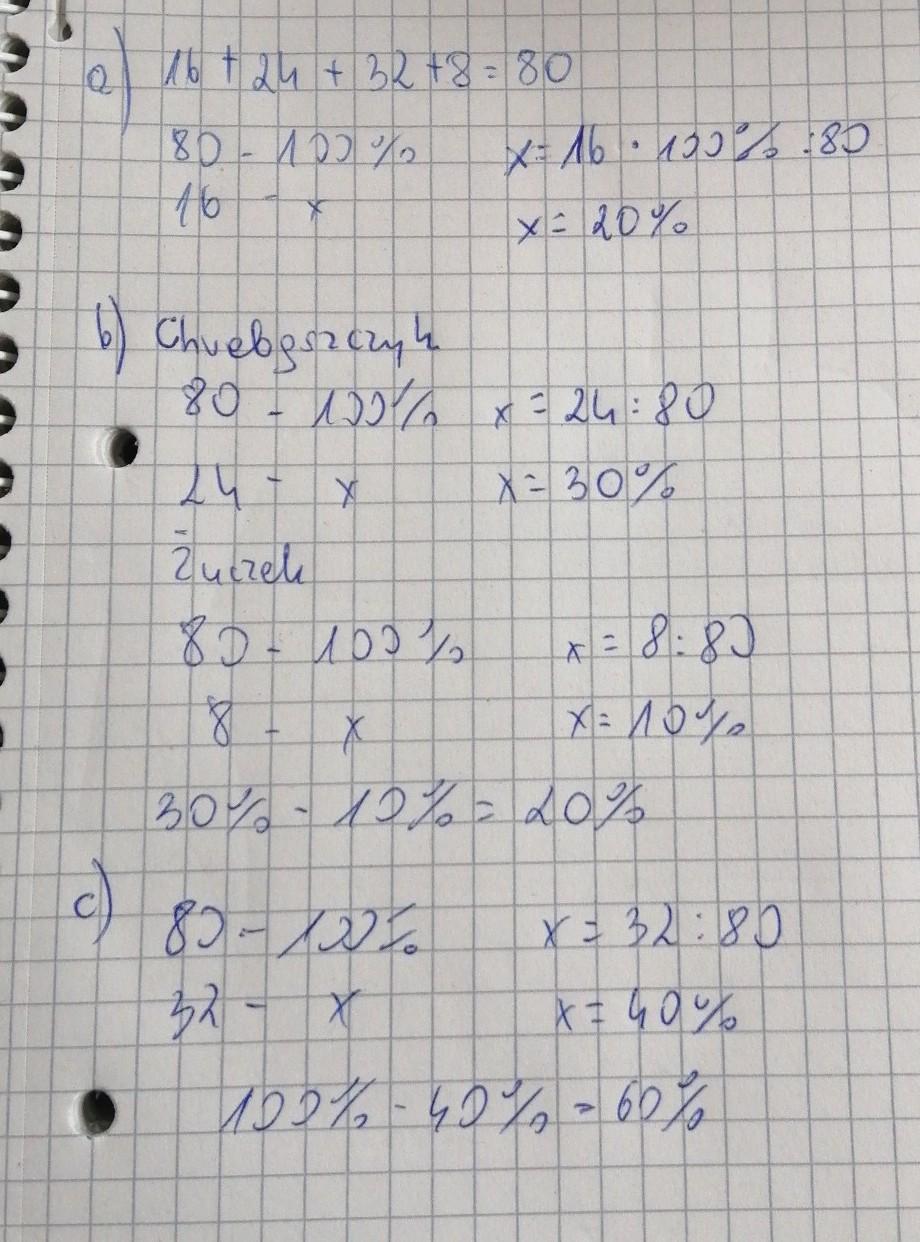 a) 16 + 24 + 32 + 8 = 80
80 - 100% x = 16 · 100% : 80
16 - x x = 20%
b) Chrebąszczyk
80 - 100% x = 24 : 80
24 - x x = 30%
Żuczek
80 - 100% x = 8 : 80
8 - x x = 10%
30% - 10% = 20%
c) 80 - 100% x = 32 : 80
32 - x x = 40%
100% - 40% = 60%